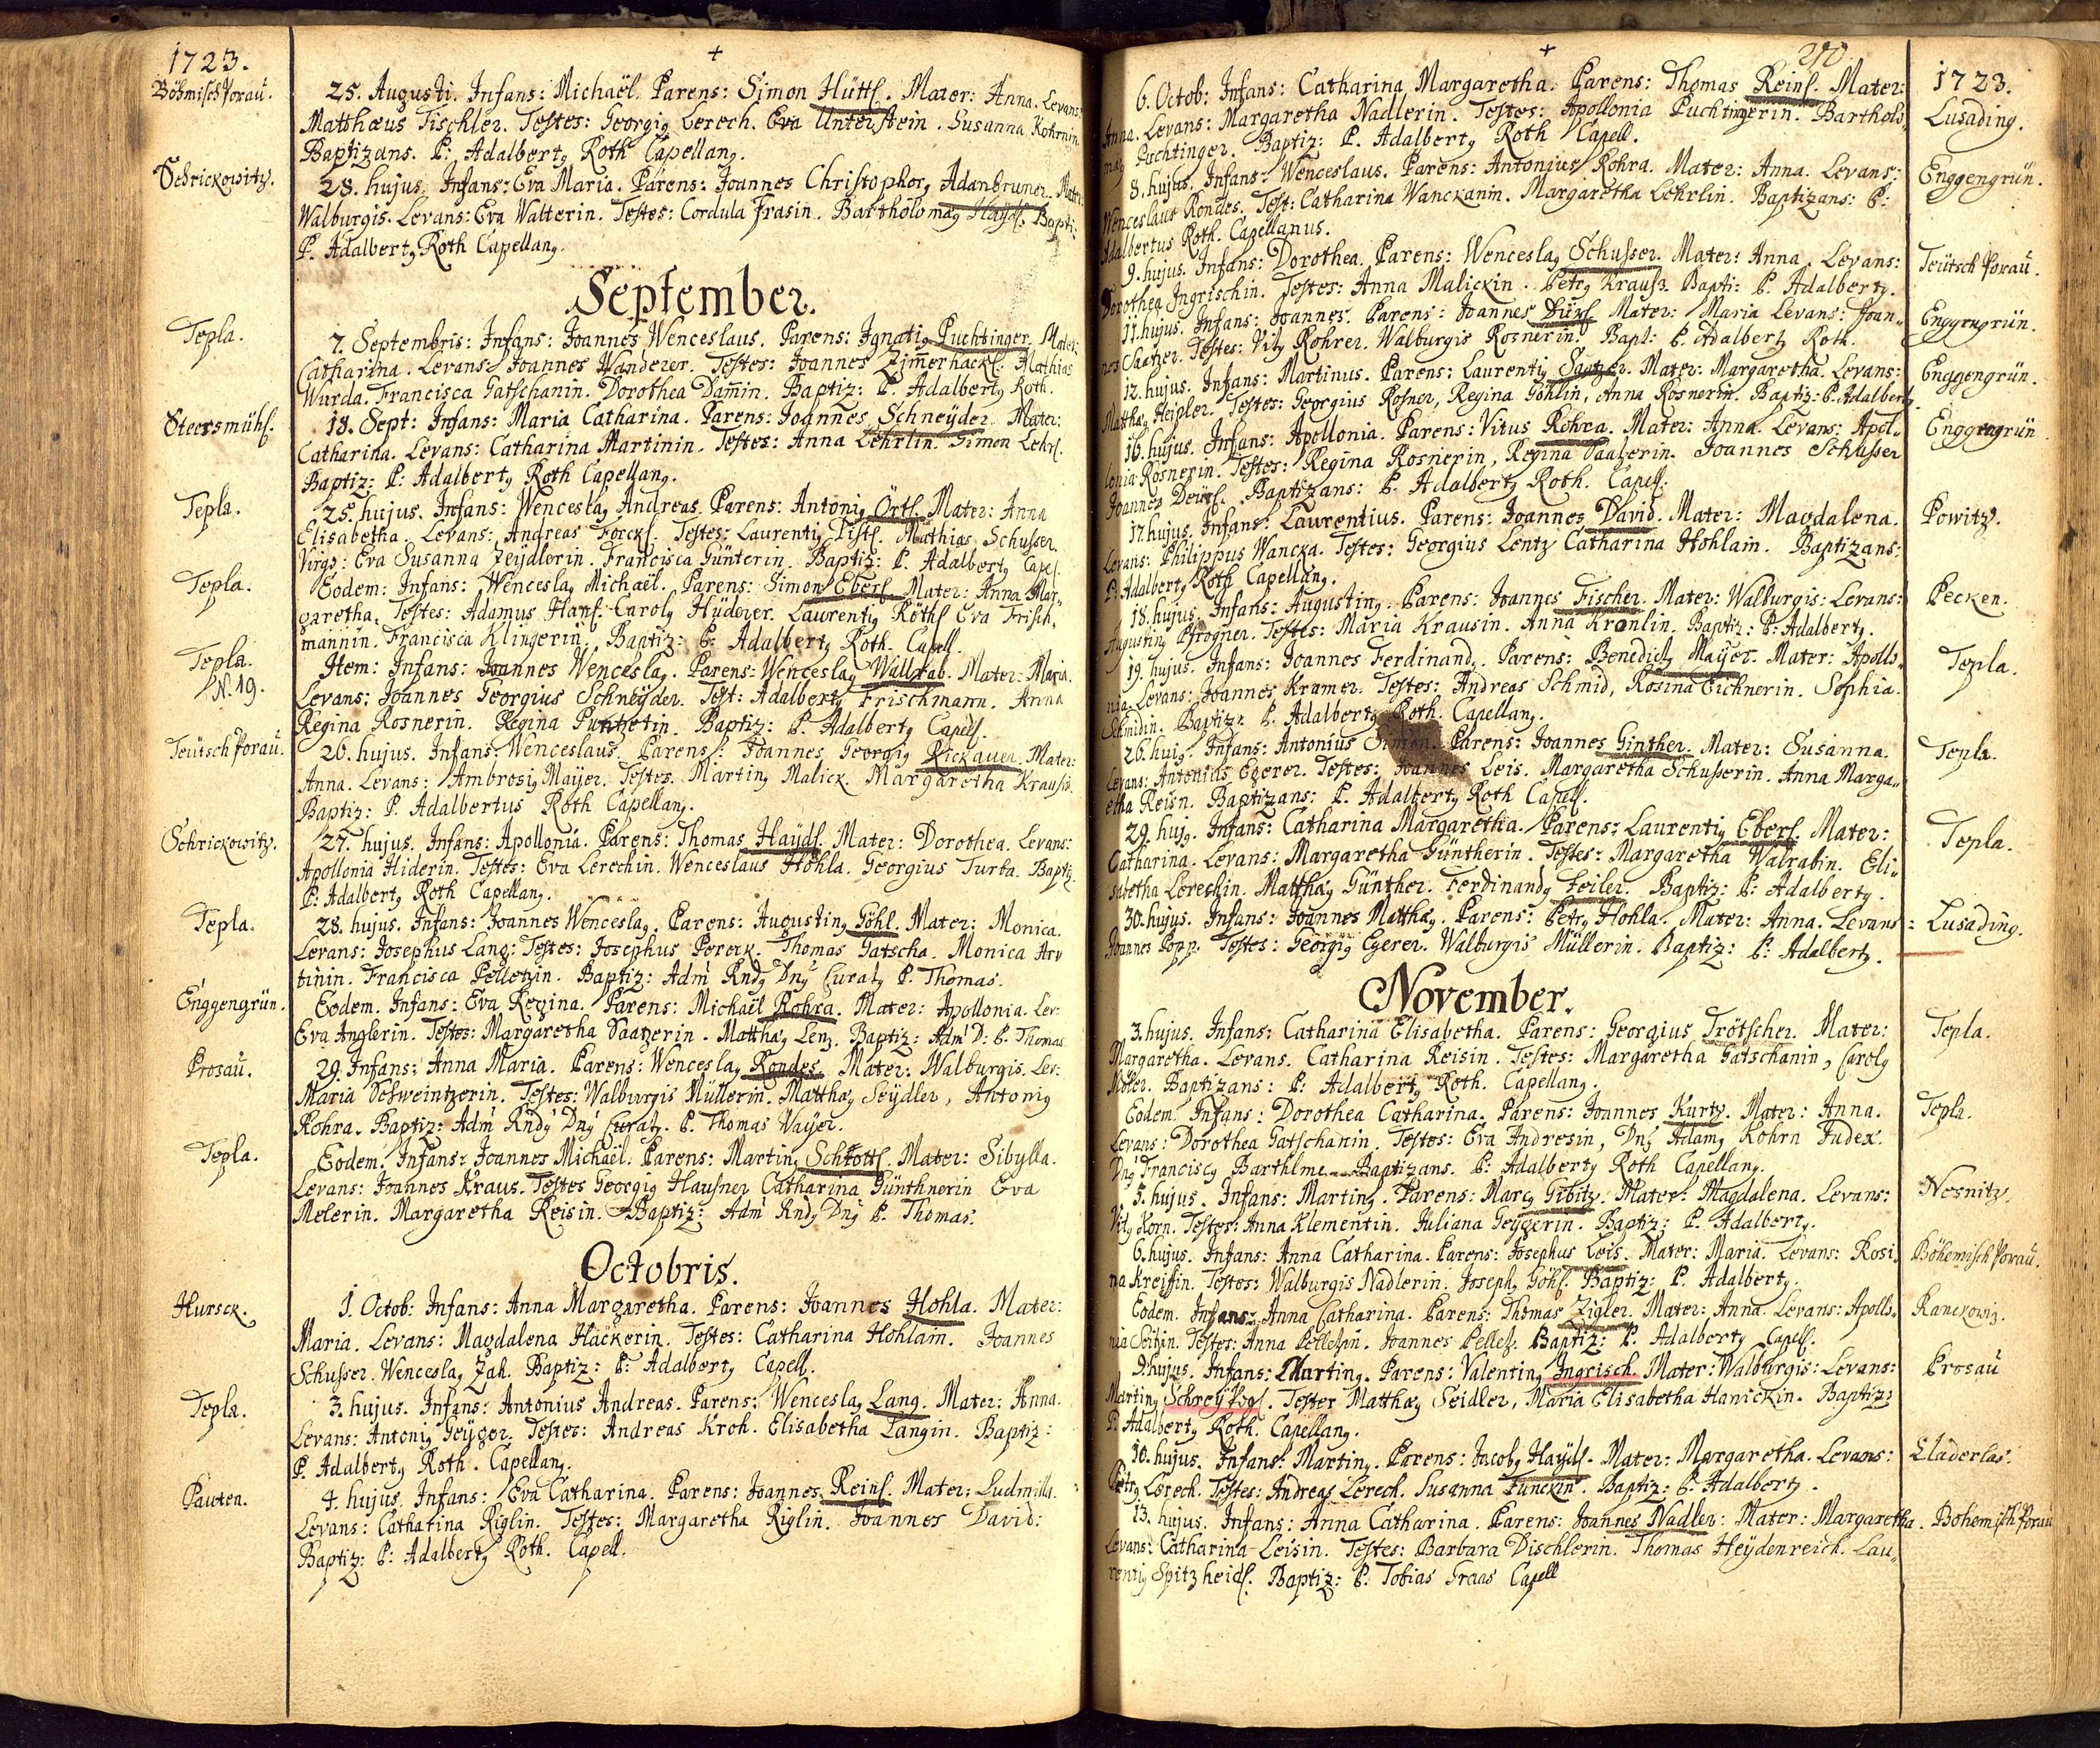 1723.
Böhmisch Porau.
25. Augusti. Infans: Michaël. Parens: Simon Hüttl. Mater: Anna. Levans:
Matthæus Tischler. Testes: Georgig Lerech. Eva Unterstein. Susanna Kohrnin.
Baptizans. P: Adalbertg Roth Capellang.
Schrickowitz.
28. hujus. Infans: Eva Maria. Parens: Joannes Christophorg Adanbruner. Mater:
Walburgis. Levans: Eva Walterin. Testes: Cordula Frasin. Bartholomæg Haydl. Bapti:
P. Adalbertg Roth Capellang.
September.
Tepla.
7. Septembris: Infans: Joannes Wenceslaus. Parens: Ignatig Puchtinger. Mater:
Catharina. Levans: Joannes Wanderer. Testes: Joannes Zim̄erhackl. Mathias
Wurda. Francisca Gatschanin. Dorothea Dam̄in. Baptiz: P. Adalbertg Roth.
Steersmühl.
18. Sept: Infans: Maria Catharina. Parens: Joannes Schneyder. Mater:
Catharina. Levans: Catharina Martinin. Testes: Anna Lehrlin. Simon Lehrl.
Baptiz: P: Adalbertg Roth Capellang.
Tepla.
25. hujus. Infans: Wenceslag Andreas. Parens: Antonig Örtl. Mater: Anna
Elisabetha. Levans: Andreas Forckl. Testes: Laurentig Pistl. Mathias Schusser.
Virgo: Eva Susanna Zeydlerin. Francisca Günterin. Baptiz: P. Adalbertg Capel.
Tepla.
Eodem: Infans: Wenceslag Michaël. Parens: Simon Eberl. Mater: Anna Mar-
garetha. Testes: Adamus Hanl. Carolg Hüderer. Laurentig Röthl Eva Frisch,
mannin. Francisca Klingerin. Baptiz: P: Adalbertg Roth. Capell.
Tepla.
N. 19.
Item: Infans: Joannes Wenceslag. Parens: Wenceslag Wallrab. Mater: Maria.
Levans: Joannes Georgius Schneyder. Test: Adalbertg Frischmann. Anna
Regina Rosnerin. Regina Punnetin. Baptiz: P. Adalbertg Capell.
Teütsch Porau.
26. hujus. Infans: Wenceslaus. Parens: Joannes Georgig Rickauer. Mater:
Anna. Levans: Ambrosig Mayer. Testes. Marting Malick. Margaretha Kraussin.
Baptiz: P. Adalbertus Roth Capellang.
Schrickowitz.
27. hujus. Infans: Apollonia. Parens: Thomas Haydl. Mater: Dorothea. Levans:
Apollonia Hiderin. Testes: Eva Lerechin. Wenceslaus Hohla. Georgius Turba. Baptiz
P: Adalbertg Roth Capellang.
Tepla.
28. hujus. Infans: Joannes Wenceslag. Parens: Augusting Göhl. Mater: Monica.
Levans: Josephus Lang: Testes: Josephus Pereck. Thomas Gatscha. Monica Arv
tinin. Francisca Pelletzin. Baptiz: Adm Rndg Dng Curatg P. Thomas.
Enggengrün.
Eodem. Infans: Eva Regina. Parens: Michaël Rohra. Mater: Apollonia. Lev:
Eva Anglerin. Testes: Margaretha Saatzerin. Matthæg Lenz. Baptiz: Adm D: P. Thomas
Prosau.
29. Infans: Anna Maria. Parens: Wenceslag Rondes. Mater: Walburgis. Lev:
Maria Schweintzerin. Testes: Walburgis Müllerin. Matthæg Seydler, Antonig
Rohra. Baptiz: Adm Rndg Dng Curatg. P. Thomas Wayer.
Tepla.
Eodem. Infans: Joannes Michaël. Parens: Marting Schrottl. Mater: Sibylla.
Levans: Joannes Kraus. Testes Georgig Hausner Catharina Günthnerin Eva
Melerin. Margaretha Reisin. Baptiz: Adm Rndg Dng P. Thomas.
Octobris.
Hursck.
1. Octob: Infans: Anna Margaretha. Parens: Joannes Hohla. Mater:
Maria. Levans: Magdalena Häckerin. Testes: Catharina Hohlain. Joannes
Schusser. Wenceslag Zah. Baptiz: P: Adalbertg Capell.
Tepla.
3. hujus. Infans: Antonius Andreas. Parens: Wenceslag Lang. Mater: Anna.
Levans: Antonig Geyger. Testes: Andreas Kroh. Elisabetha Langin. Baptiz:
P. Adalbertg Roth. Capellang.
Pauten.
4. hujus. Infans: Eva Catharina. Parens: Joannes Reinl. Mater: Ludmilla.
Levans: Catharina Riglin. Testes: Margaretha Riglin. Joannes David:
Baptiz: P: Adalbertg Roth. Capell.
270.
1723.
6. Octob: Infans: Catharina Margaretha. Parens: Thomas Reinl. Mater:
Anna. Levans: Margaretha Nadlerin. Testes: Apollonia Puchtingerin. Bartholo-
mæg Puchtinger. Baptiz: P. Adalbertg Roth Capell.
Lusading.
8. hujus. Infans: Wenceslaus. Parens: Antonius Rohra. Mater: Anna. Levans:
Wenceslaus Rondes. Test: Catharina Wanckanin. Margaretha Lehrlin. Baptizans: P:
Adalbertus Roth. Capellanus.
Enggengrün.
9. hujus. Infans: Dorothea. Parens: Wenceslag Schusser. Mater: Anna. Levans:
Dorothea Ingrischin. Testes: Anna Malickin. Petrg Krauss. Bapti: P. Adalbertg.
Teütsch Porau.
11. hujus. Infans: Joannes. Parens: Joannes Dürl. Mater: Maria Levans: Joan-
nes Saatzer. Testes: Vitg Rohrer. Walburgis Rosnerin. Bapt: P. Adalbertg Roth.
Enggengrün.
12. hujus. Infans: Martinus. Parens: Laurentig Saatzer. Mater: Margaretha. Levans:
Matthæg Heipler. Testes: Georgius Rosner, Regina Göhlin, Anna Rosnerin. Baptiz: P. Adalbertg
Enggengrün.
16. hujus. Infans: Apollonia. Parens: Vitus Rohra. Mater: Anna. Levans: Apol-
lonia Rosnerin. Testes: Regina Rosnerin, Regina Saazerin. Joannes Schusser
Joannes Deurl. Baptizans: P. Adalbertg Roth. Capell.
Enggengrün
17. hujus. Infans: Laurentius. Parens: Joannes David. Mater: Magdalena.
Levans: Philippus Wancka. Testes: Georgius Lentz Catharina Hohlain. Baptizans:
P: Adalbertg Roth Capellang.
Powitz.
18. hujus. Infans: Augusting. Parens: Joannes Fischer. Mater: Walburgis: Levans:
Augusting Pfrogner. Testes: Maria Krausin. Anna Kronlin. Baptiz: P: Adalbertg.
Pecken.
19. hujus. Infans: Joannes Ferdinandg. Parens: Benedictg Mayer. Mater: Apollo-
nia. Levans: Joannes Kramer. Testes: Andreas Schmid, Rosina Eichnerin. Sophia
Schmidin. Baptiz: P. Adalbertg Roth. Capellang.
Tepla.
26. hujg. Infans: Antonius Simon. Parens: Joannes Ginther. Mater: Susanna.
Levans: Antonius Egerer. Testes: Joannes Leis. Margaretha Schusserin. Anna Marga-
etha Reisn. Baptizans: P. Adalbertg Roth Capell.
Tepla.
29. hujg. Infans: Catharina Margaretha. Parens: Laurentig Eberl. Mater:
Catharina. Levans: Margaretha Güntherin. Testes: Margaretha Walrabin. Eli-
sabetha Lereschin. Matthæg Günther. Ferdinandg Zeiler. Baptiz: P: Adalbertg.
Tepla.
30. hujus. Infans: Joannes Matthæg. Parens: Petrg Hohla. Mater: Anna. Levans:
Joannes Popp. Testes: Georgig Egerer. Walburgis Müllerin. Baptiz: P: Adalbertg.
Lusading.
November.
3. hujus. Infans: Catharina Elisabetha. Parens: Georgius Trötscher. Mater:
Margaretha. Levans. Catharina Reisin. Testes: Margaretha Gatschanin, Carolg
Möler. Baptizans: P: Adalbertg Roth. Capellang.
Tepla.
Eodem. Infans: Dorothea Catharina. Parens: Joannes Kurtz. Mater: Anna.
Levans: Dorothea Gatschanin. Testes: Eva Andresin, Dng Adamg Kohrn Judex.
Dng Franciscg Barthlme. Baptizans. P: Adalbertg Roth Capellang.
Tepla.
5. hujus. Infans: Marting. Parens: Marcg Gibitz. Mater: Magdalena. Levans:
Vitg Korn. Testes: Anna Klementin. Juliana Geygerin. Baptiz: P. Adalbertg.
Wesnitz.
6. hujus. Infans: Anna Catharina. Parens: Josephus Leis. Mater: Maria. Levans: Rosi-
na Kreissin. Testes: Walburgis Nadlerin. Josephg Göhl. Baptiz: P. Adalbertg.
Böhemisch Porau.
Eodem. Infans: Anna Catharina. Parens: Thomas Zigler. Mater: Anna. Levans: Apollo-
nia Testes: Anna Pelletzin. Joannes Pelletz. Baptiz: P. Adalbertg Capell.
Ranckowiz.
9. hujus. Infans: Marting. Parens: Valenting Ingrisch. Mater: Walburgis: Levans:
Marting Schreypogl. Testes Matthæg Seidler, Maria Elisabetha Hanickin. Baptiz:
P. Adalbertg Roth. Capellang.
Prosau
10. hujus. Infans: Marting. Parens: Jacobg Haydl. Mater: Margaretha. Levans:
Petrg Lerech. Testes: Andreas Lerech. Susanna Funckin. Baptiz: P. Adalbertg.
Kladerlas.
13. hujus. Infans: Anna Catharina. Parens: Joannes Nadler: Mater: Margaretha.
Levans: Catharina Leisin. Testes: Barbara Dischlerin. Thomas Heydenreich. Lau-
rentig Spitzheidl. Baptiz: P. Tobias Graas Capell
Bohemisch Porau